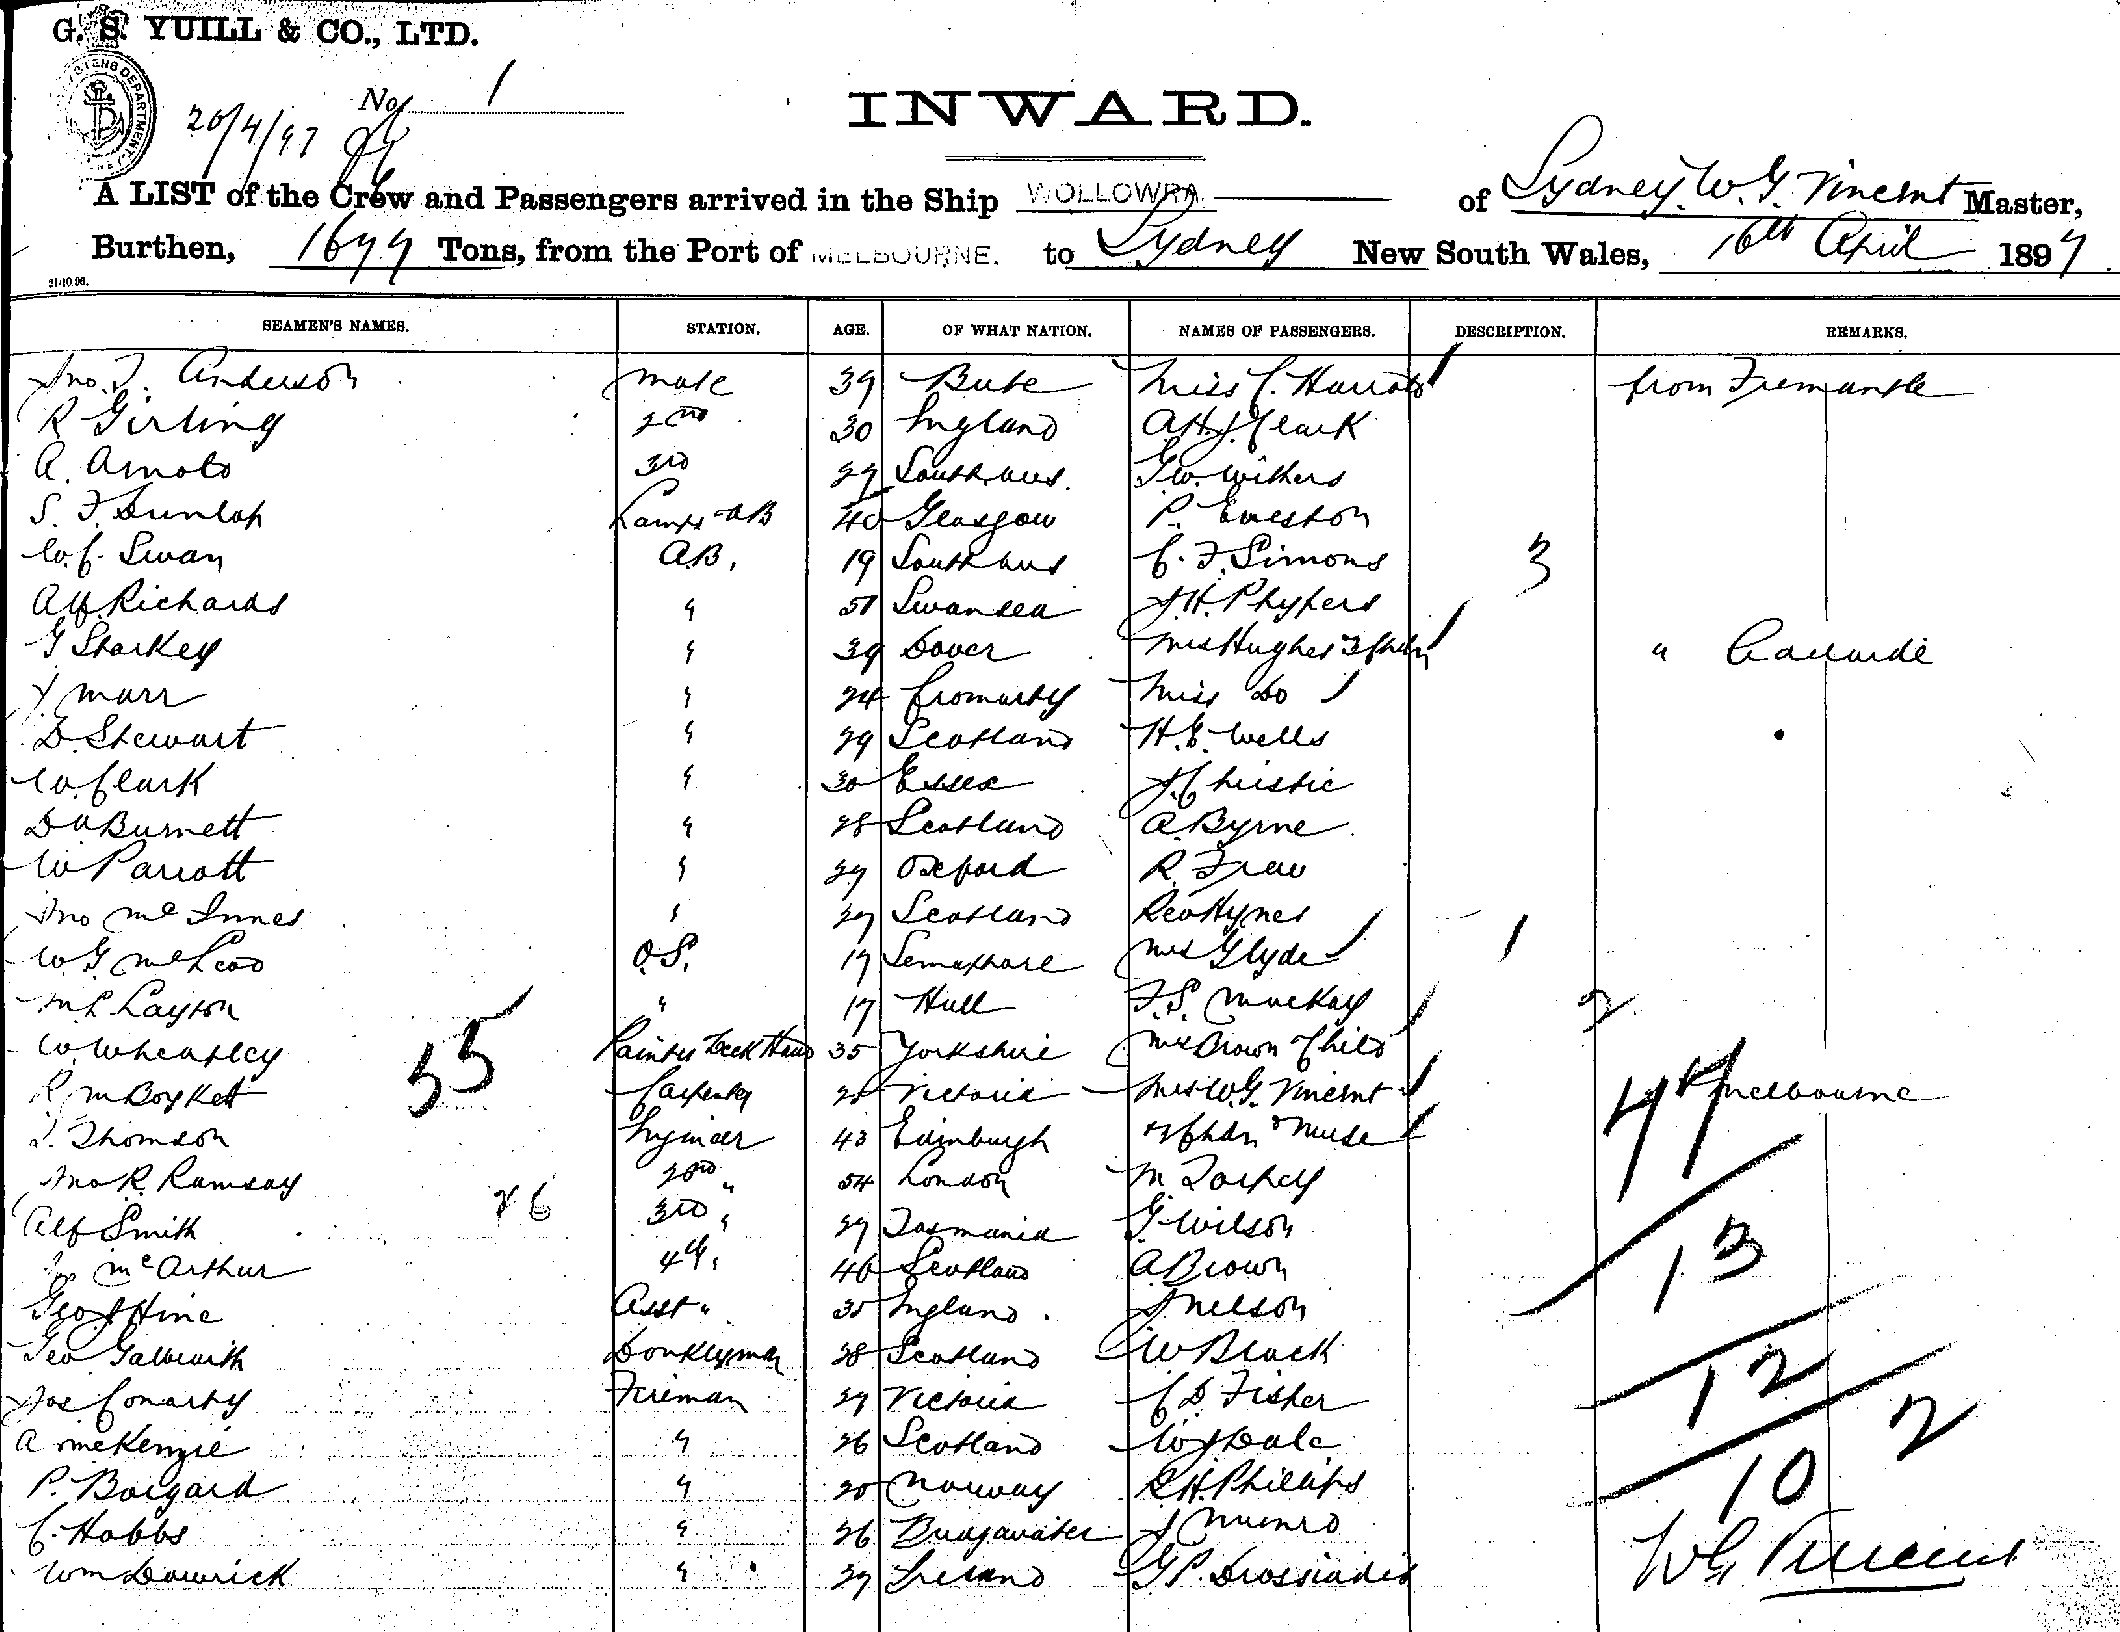 G. S. YUILL & CO., LTD.
No 1
20/4/97
INWARD.
A LIST of the Crew and Passengers arrived in the Ship WOLLOWRA of Sydney. W. G. Vincent Master,
Burthen, 1699 Tons, from the Port of MELBOURNE. to Sydney New South Wales, 16th April 1897
21·10·96.
SEAMEN'S NAMES. STATION. AGE. OF WHAT NATION. NAMES OF PASSENGERS. DESCRIPTION. REMARKS.
Jno. J. Anderson mate 39 Bute Miss C. from Fremantle
R Girling 2nd 30 England A.H.J. Clark
A. Arnold 3rd 29 South aus. Geo. Withers
S. F. Dunlop Lamps AB 40 Glasgow P. Eveston
W. C. Swan A.B. 19 South aus C. F. Simons 3
Alf. Richards " 51 Swansea J. H. Phypers
G Sharkey " 39 Dover Mrs Hughes 3 chdn "
J. Marr " 24 Cromarty Miss Do
D. Stewart " 29 Scotland H. E. Wells
W. Clark " 30 Essex J. Christie
D Burnett " 28 Scotland A. Byrne
W Parrott " 29 Oxford R.
Jno McInnes " 29 Scotland Rev Hynes
W. G. McLeod O.S. 17 Semaphore Mrs Glyde 1
M L Layton " 17 Hull F. S. Mackay 2
W. Wheatley Painter Deck Hand 35 Yorkshire Mrs Brown & Child
55
R M Boykett Carpenter Victoria Mrs W. G. Vincent 47 Melbourne
J. Thomson Engineer 43 Edinburgh 2 Chdn & Nurse
Jno R. Ramsay 2nd " 54 London M
26
Alf Smith 3rd " 29 Tasmania G. Wilson
McArthur 4th " 46 Scotland A. Brown 13
Geo Hine Asst " 35 England J Nelson
Geo Galbraith Donkeyman 38 Scotland W Black 12
Jas Conarty Fireman 29 Victoria C D Fisher 2
A McKenzie " 26 Scotland W J Dale
P. Borgard " 20 Norway R. H. Phillips 10
C. Hobbs " 26 Bridgwater J Munro
Wm Dowrick " 29 Ireland G P. Drossinadis W G Vincent